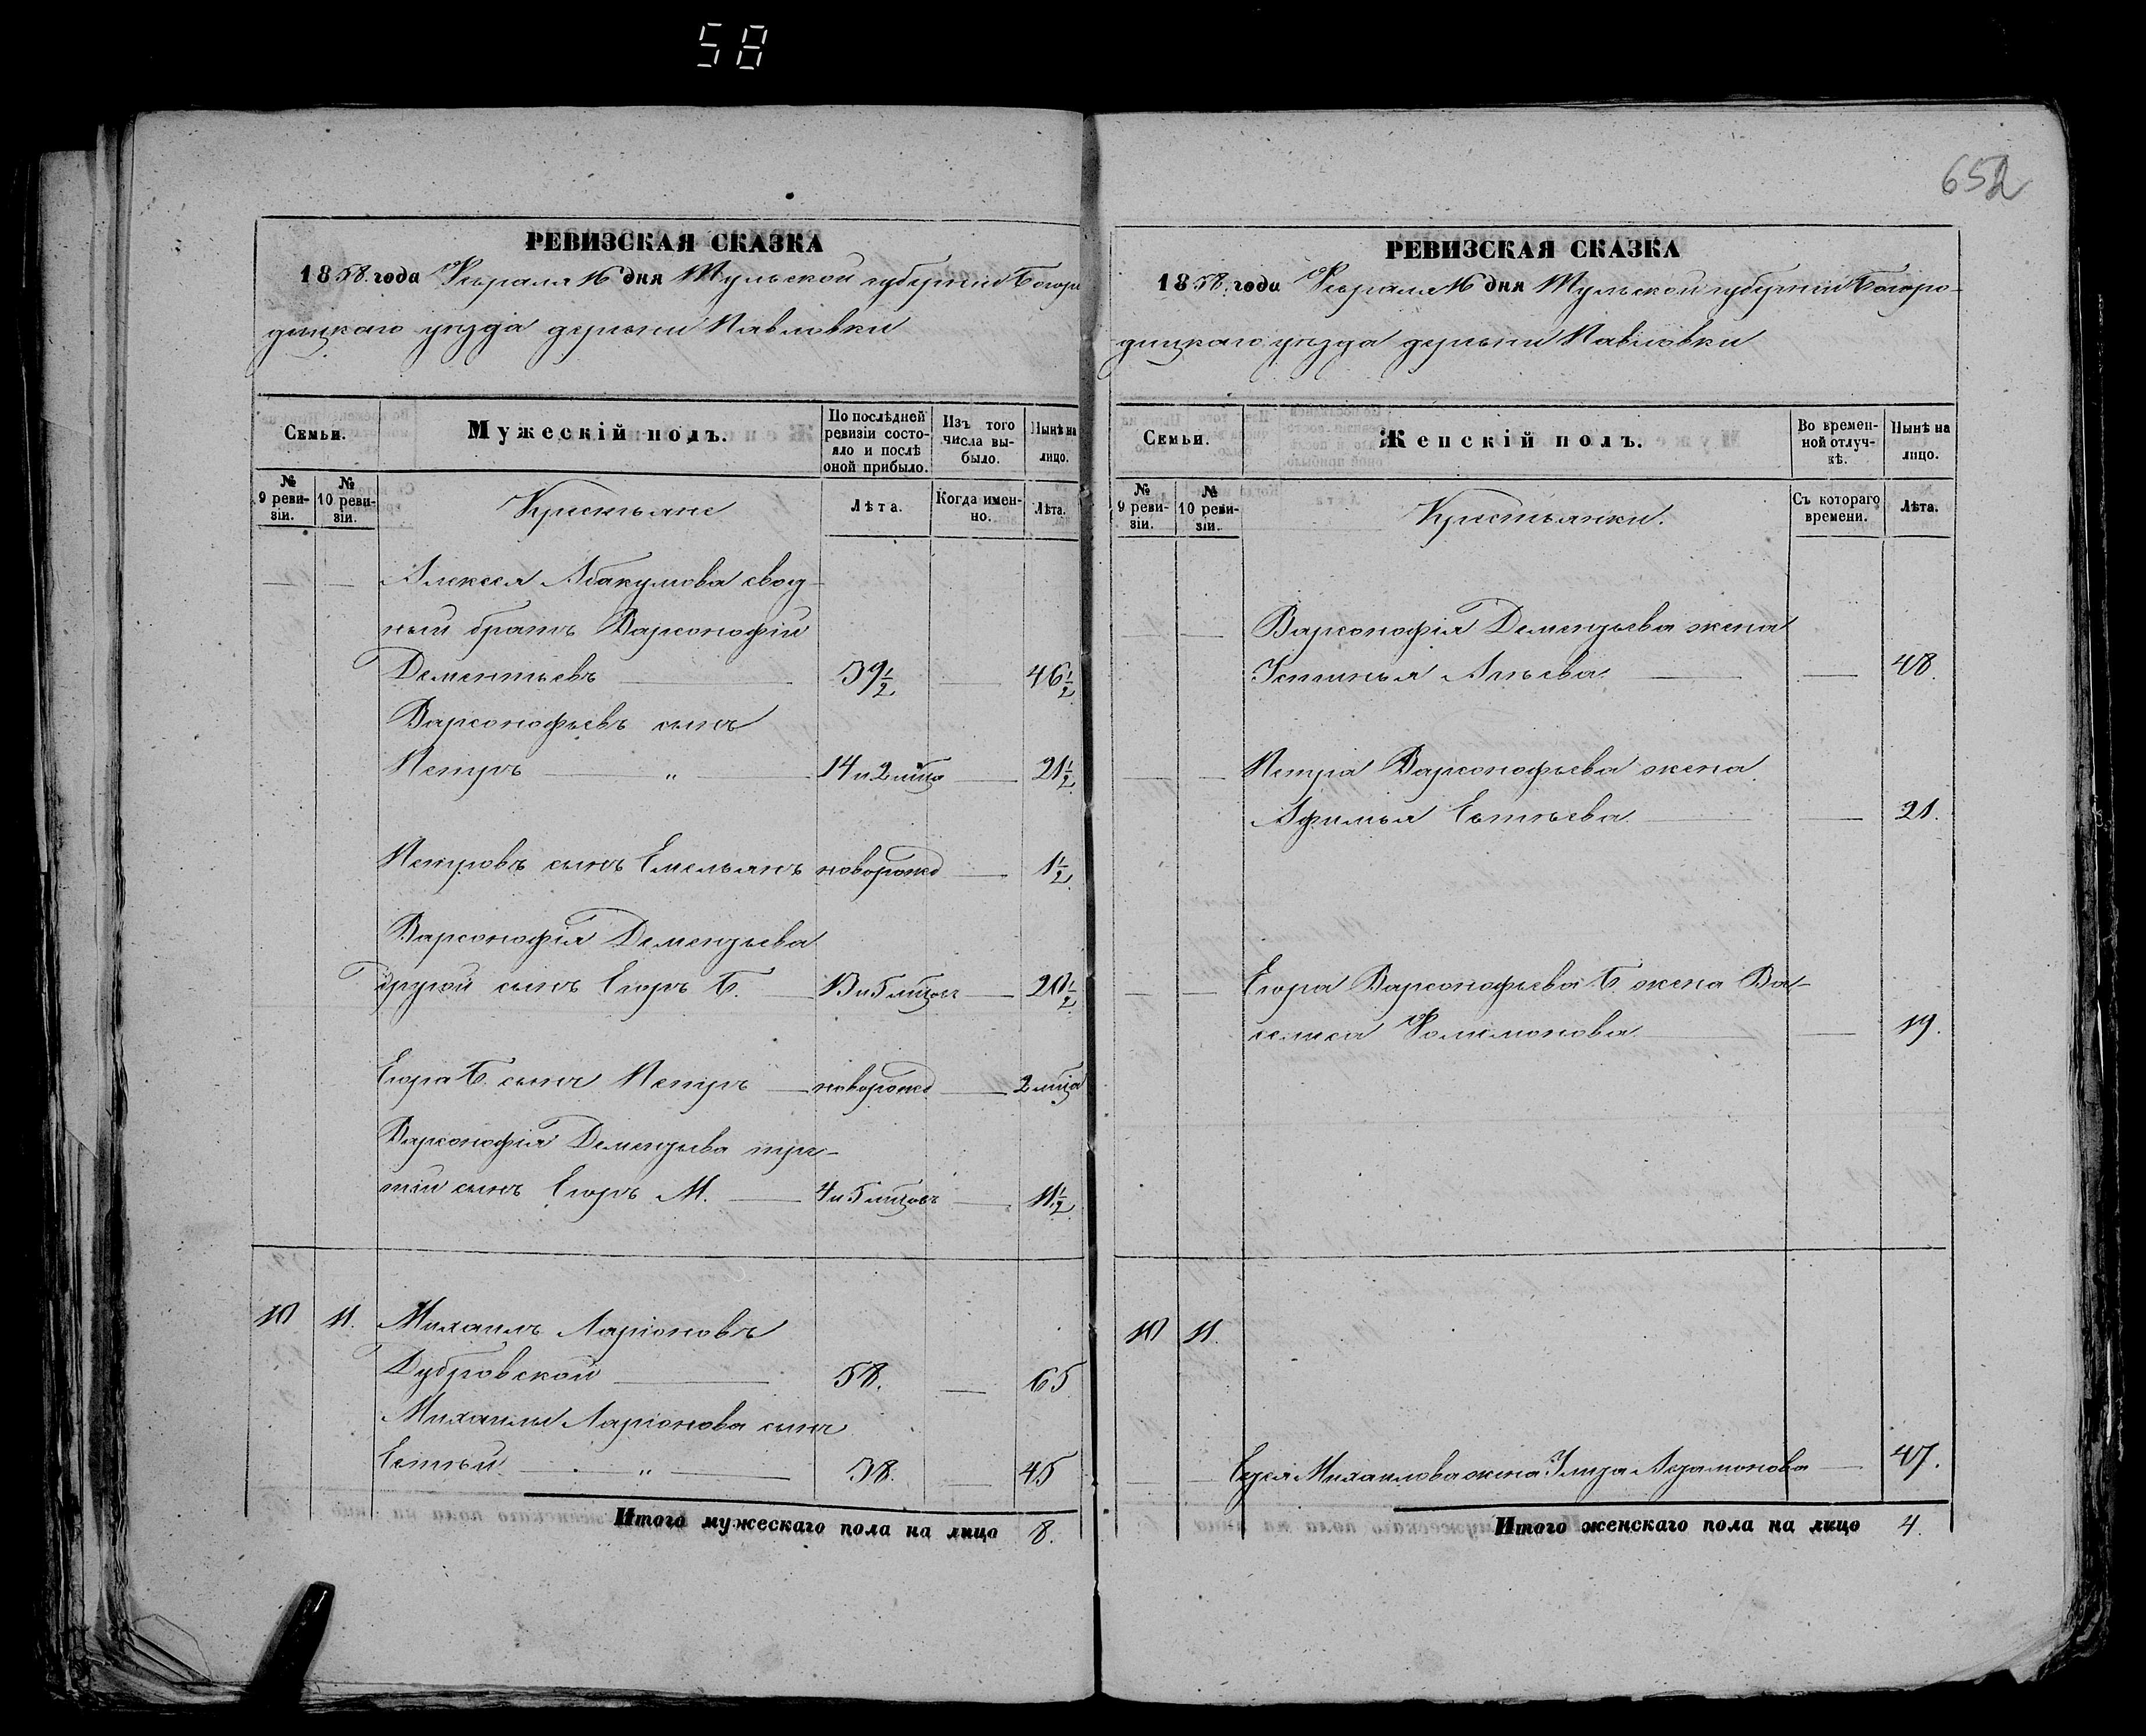 58
652
РЕВИЗСКАЯ СКАЗКА
1858 года Февраля 16 дня Тульской губернии Богоро
дицкаго уезда деревни Павловки
Семьи.
Мужескій полъ.
По послѣдней ревизіи состояло и послѣ оной прибыло.
Изъ того числа выбыло.
Нынѣ на лицо.
№ 9 ревизіи.
№ 10 ревизіи.
Крестьяне
Лѣта.
Когда именно.
Лѣта.
Алексея Абакумова свод-
ный братъ Варсонофий
Дементьевъ 39½ 46½
Варсонофьевъ сынъ
Петръ " 14 и 2 мѣца 21½
Петровъ сынъ Емельянъ новорожд 1½
Варсонофія Дементьева
другой сынъ Егоръ Б. 13 и 5 мѣцовъ 20½
Егора Б. сынъ Петръ новорожд 2 мѣца
Варсонофія Дементьева тре-
тій сынъ Егоръ М. 4 и 5 мѣцовъ 11½
10 11. Михаилъ Ларіоновъ
Дубровской 58. 65
Михаилы Ларіонова сынъ
Евтѣй " 38. 45
Итого мужескаго пола на лицо 8.
РЕВИЗСКАЯ СКАЗКА
1858 года Февраля 16 дня Тульской губерніи Богоро-
дицкаго уезда деревни Павловки
Семьи.
Женскій полъ.
Во временной отлучкѣ.
Нынѣ на лицо.
№ 9 ревизіи.
№ 10 ревизіи.
Крестьянки.
Съ котораго времени.
Лѣта.
Варсонофія Дементьева жена
Устинья 48.
Петра Варсонофьева жена
Афимья Евтѣева 21.
Егора Варсонофьева Б. жена Ва-
селиса Фолимонова 19.
10 11.
Михаилова жена Улита Артамонова 47.
Итого женскаго пола на лицо 4.